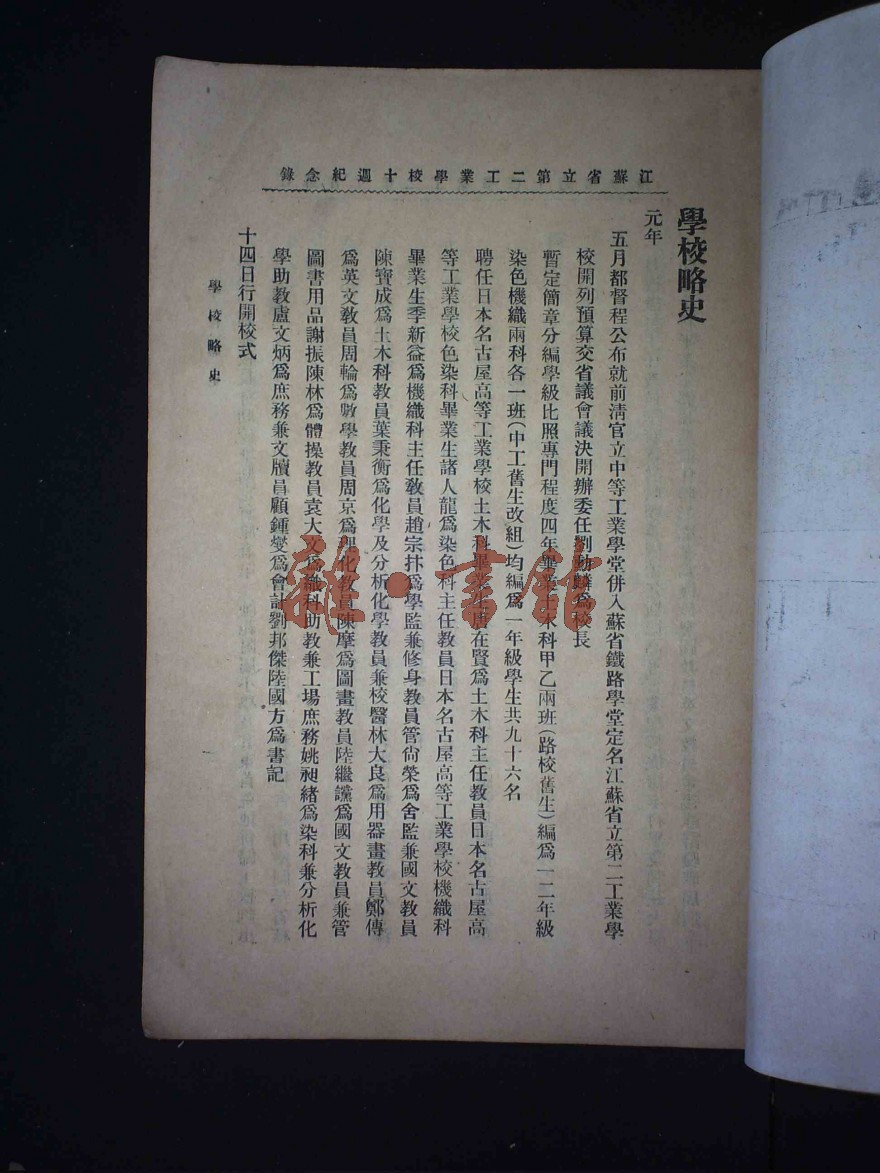 江蘇省立第二工業學校十週紀念錄
學校略史
元年
五月都督程公布就前淸官立中等工業學堂併入蘇省鐵路學堂定名江蘇省立第二工業學
校開列預算交省議會議決開辦委任劉勳麟爲校長
暫定簡章分編學級比照專門程度四年畢業土木科甲乙兩班(路校舊生)編爲一二年級
染色機織兩科各一班(中工舊生改組)均編爲一年級學生共九十六名
聘任日本名古屋高等工業學校土木科畢業生唐在賢爲土木科主任教員日本名古屋高
等工業學校色染科畢業生諸人龍爲染色科主任教員日本名古屋高等工業學校機織科
畢業生季新益爲機織科主任教員趙宗抃爲學監兼修身教員管尙榮爲舍監兼國文教員
陳寶成爲土木科教員葉秉衡爲化學及分析化學教員兼校醫林大良爲用器畫教員鄭傳
爲英文教員周輪爲數學教員周京爲理化教員陳摩爲圖畫教員陸繼讜爲國文教員兼管
圖書用品謝振陳林爲體操教員袁大文爲織科助教兼工場庶務姚昶緒爲染科兼分析化
學助教盧文炳爲庶務兼文牘員顧鍾燮爲會計劉邦傑陸國方爲書記
十四日行開校式
學校略史
一
雜·書館